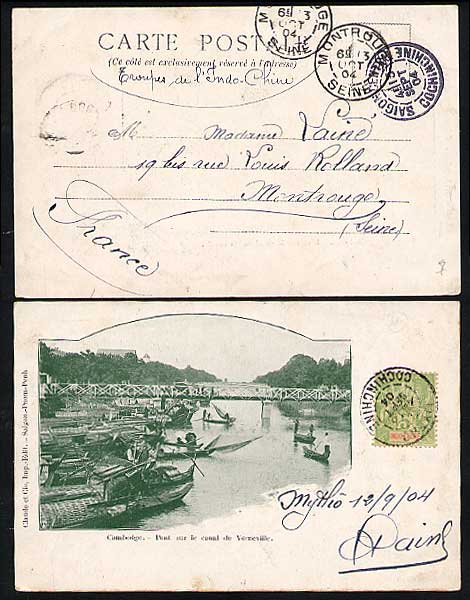 CARTE POSTALE
(Ce côté est exclusivement réservé à l'adresse)
Troupes de l'Indo-Chine
MONTROUGE
6E 13
OCT
04
SEINE
MONTROUGE
6E 13
OCT
04
SEINE
SAIGON
COCHINCHINE
SEPT
04
M Madame Lainé
19 bis rue Louis Rolland
Montrouge
(Seine)
France
Claude et Cie, Imp.-Edit. - Saigon.-Pnom-Penh
COCHINCHINE
15
Cambodge. - Pont sur le canal de Verneville.
Mytho 12/9/04
Lainé